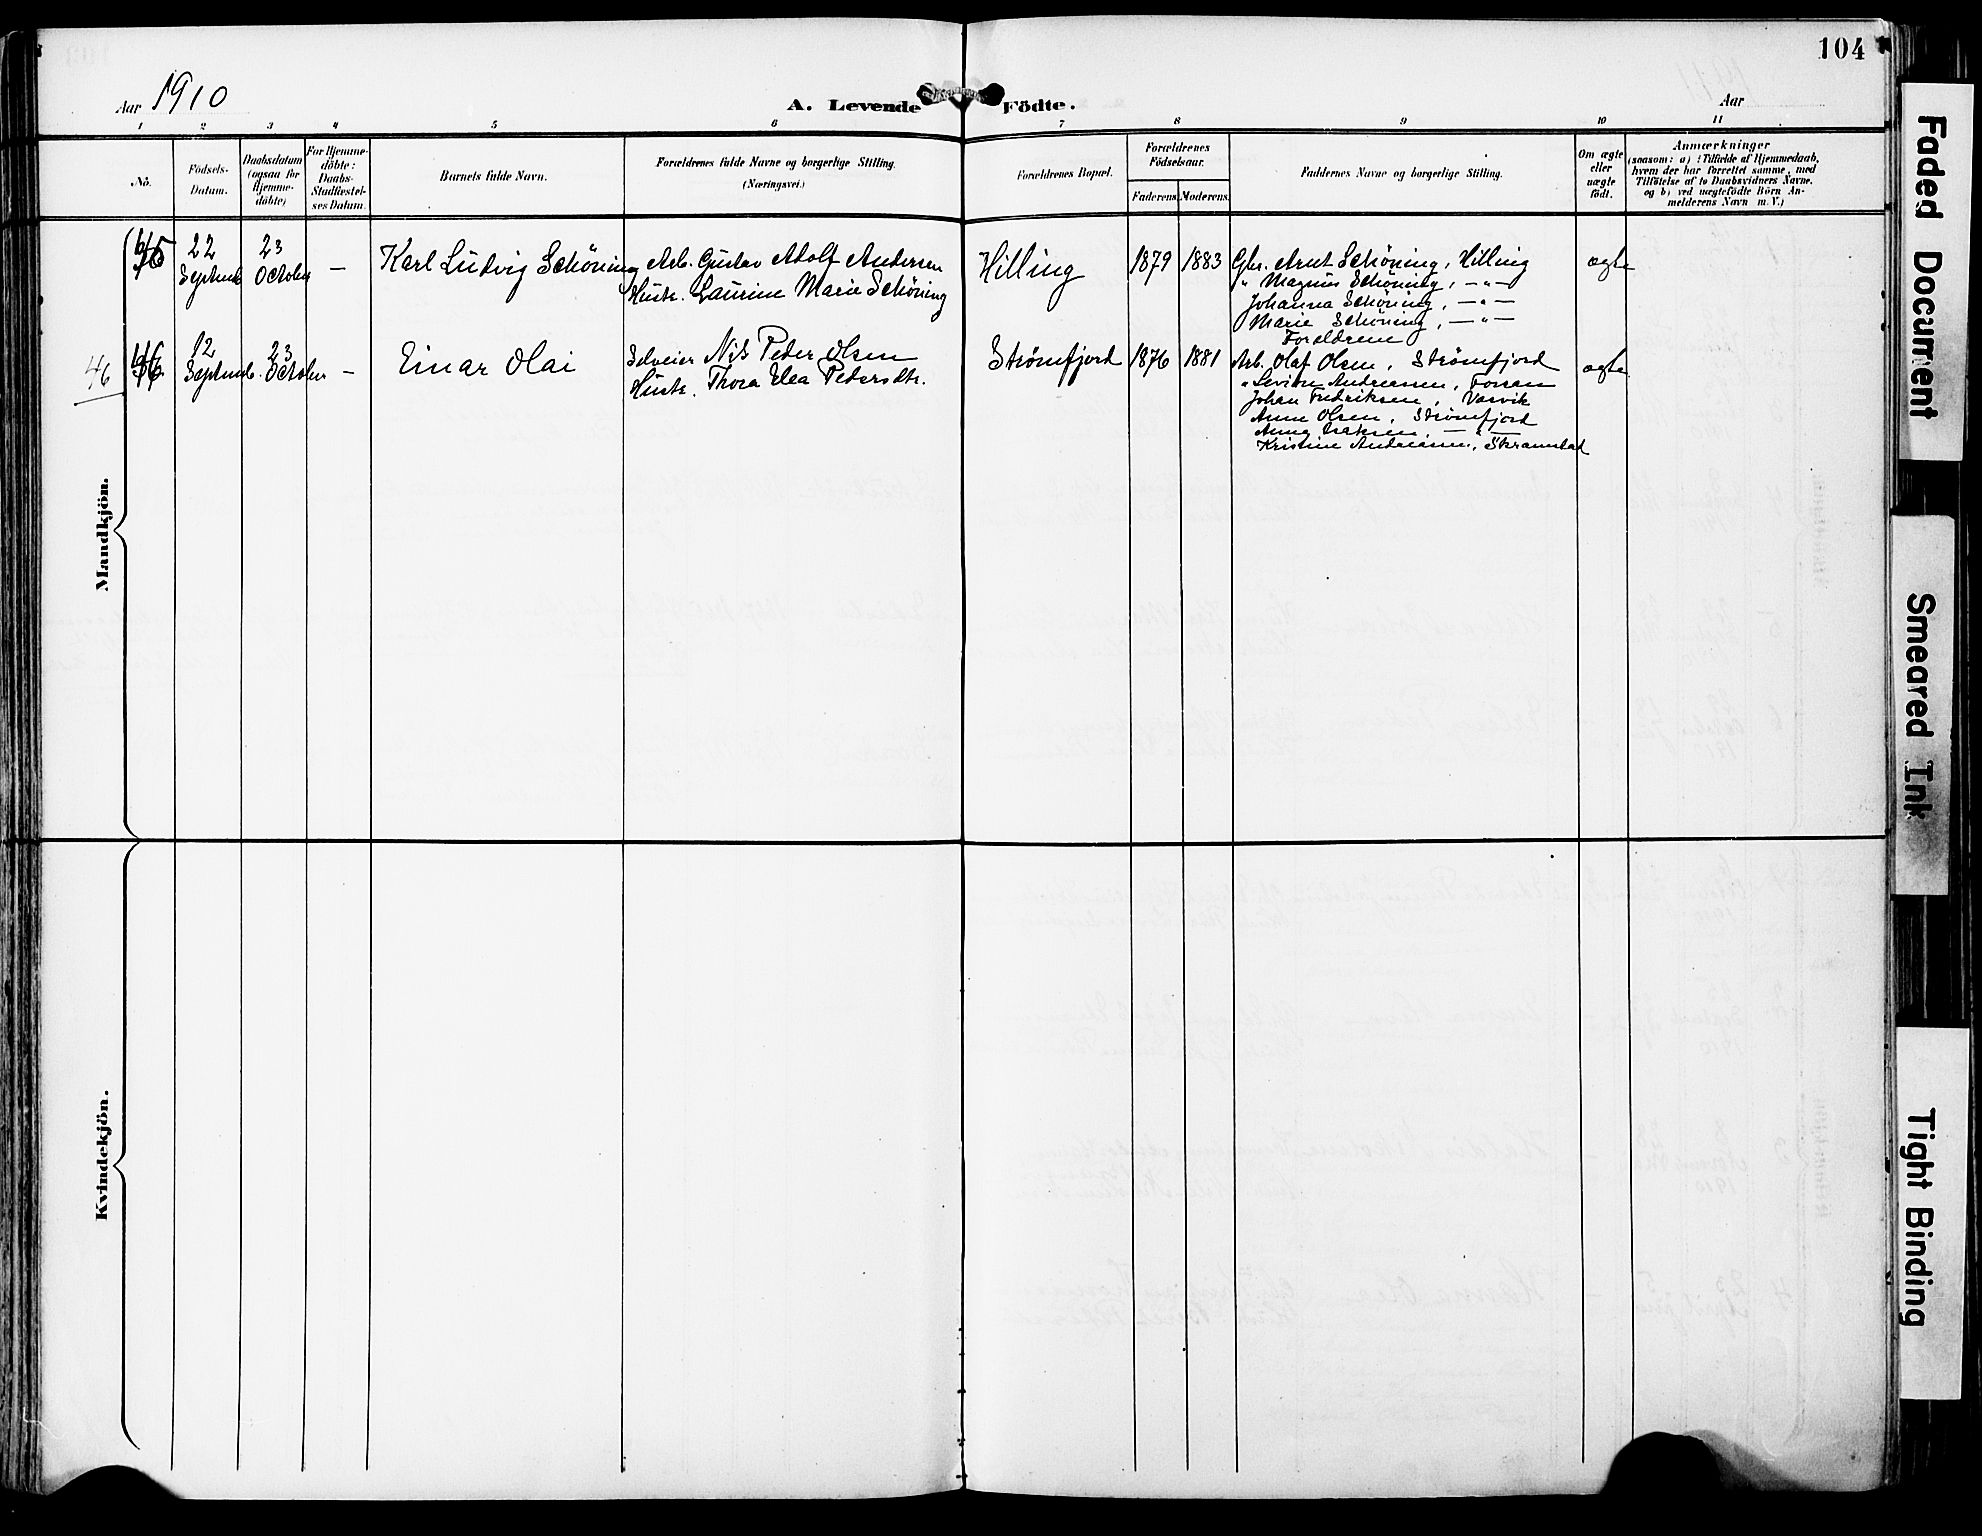 104
Aar 1910
A. Levende Födte.
Aar
1 2 3 4 5 6 7 8 9 10 11
No.
Födsels-
Datum.
Daabsdatum
(ogsaa for
Hjemme-
döbte)
For Hjemme-
döbte:
Daabs-
Stadfæstel-
ses Datum.
Barnets fulde Navn.
Forældrenes fulde Navne og borgerlige Stilling.
(Næringsvei.)
Forældrenes Bopæl.
Forældrenes
Födselsaar.
Faderens
Moderens.
Faddernes Navne og borgerlige Stilling.
Om ægte
eller
uægte
födt.
Anmærkninger
(saasom: a) i Tilfælde af Hjemmedaab,
hvem der har forrettet samme, med
Tilföielse af to Daabsvidners Navne,
og b) ved uægtefödte Börn An-
melderens Navn m. V.)
Mandkjön.
22
Septemb
23
October
—
Karl Ludvig Schöning
Arb. Gustav Adolf Andersen
Hustr. Laurine Marie Schöning
Hilling
1879
1883
Gbr. Arnt Schöning, Hilling
" Magnus Schöning, — " —
Johanna Schöning, — " —
Marie Schöning, — " —
Foreldrene
ægte
46
12
Septemb.
23
October
—
Einar Olai
Selveier Nils Peder Olsen
Hustr. Thora Elea Pedersdtr.
Strömfjord
1876
1881
Arb. Olaf Olsen, Strömfjord
" Andreassen, Forran
Johan Fredriksen, Vasvik
Anne Olsen, Strömfjord
Anna Isaksen, — " —
Kristine Andreassen, Skramstad
ægte
Kvindekjön.
Faded Document
Smeared Ink
Tight Binding